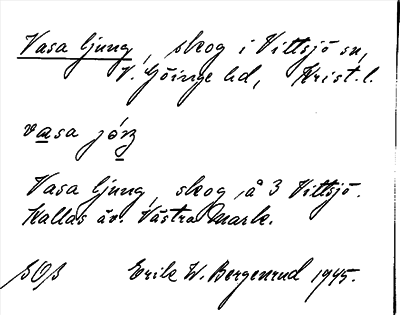 Vasa ljung, skog i Vittsjö sn,
V. Göinge hd, Krist. l.
vasa jóŋ
Vasa ljung, skog, å 3 Vittsjö.
Kallas äv. Västra Mark.
SOS Erik W. Bergenrud 1945.